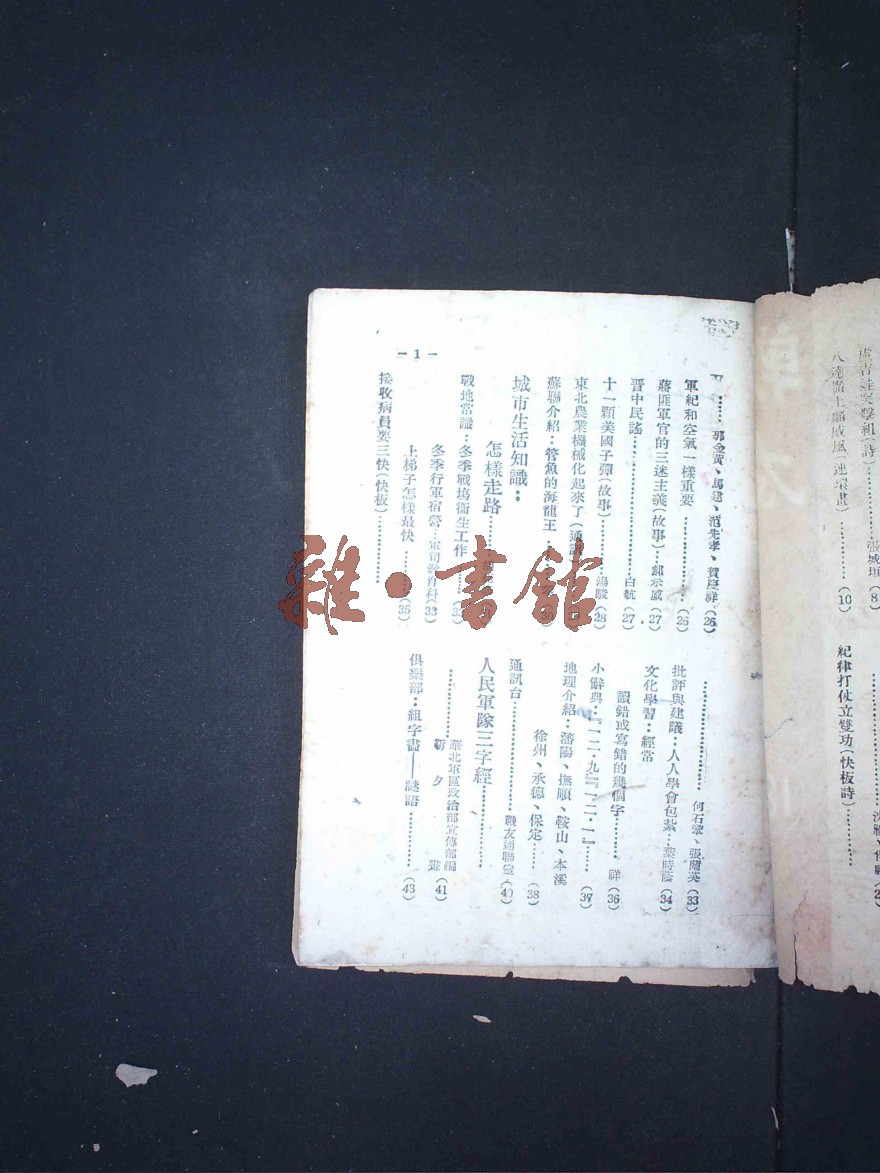 張城垣(8)
八達嶺上顯威風(連環畫)…………(10)
紀律打仗立雙功(快板詩)…………
郭金貴、馬建、范先孝、賀慶祥(26)
軍紀和空氣一樣重要…………(26)
蔣匪軍官的三迷主義(故事)…郝示威(27)
晋中民謠…………白航(27)
十一顆美國子彈(故事)…………湯駿(28)
東北農業機械化起來了
蘇聯介紹：管魚的海龍王
城市生活知識：
怎樣走路
戰地常識：冬季戰塲衞生工作
冬季行軍宿營…軍司教育科(33)
上梯子怎樣最快…………(35)
接收病員要三快(快板)…………
－1－
…………何石寧、張蘭英(33)
批評與建議：人人學會包紮…葉時蔭(34)
文化學習：經常
讀錯或寫錯的幾個字……祥(36)
小辭典：『一二．九』『一二．一』……(37)
地理介紹：瀋陽、撫順、鞍山、本溪
徐州、承德、保定……(38)
通訊台…………戰友通聯室(40)
人民軍隊三字經…………
…………華北軍區政治部宣傳部編
靳夕畫(41)
俱樂部：組字畫——謎語…………(43)
雜·書館